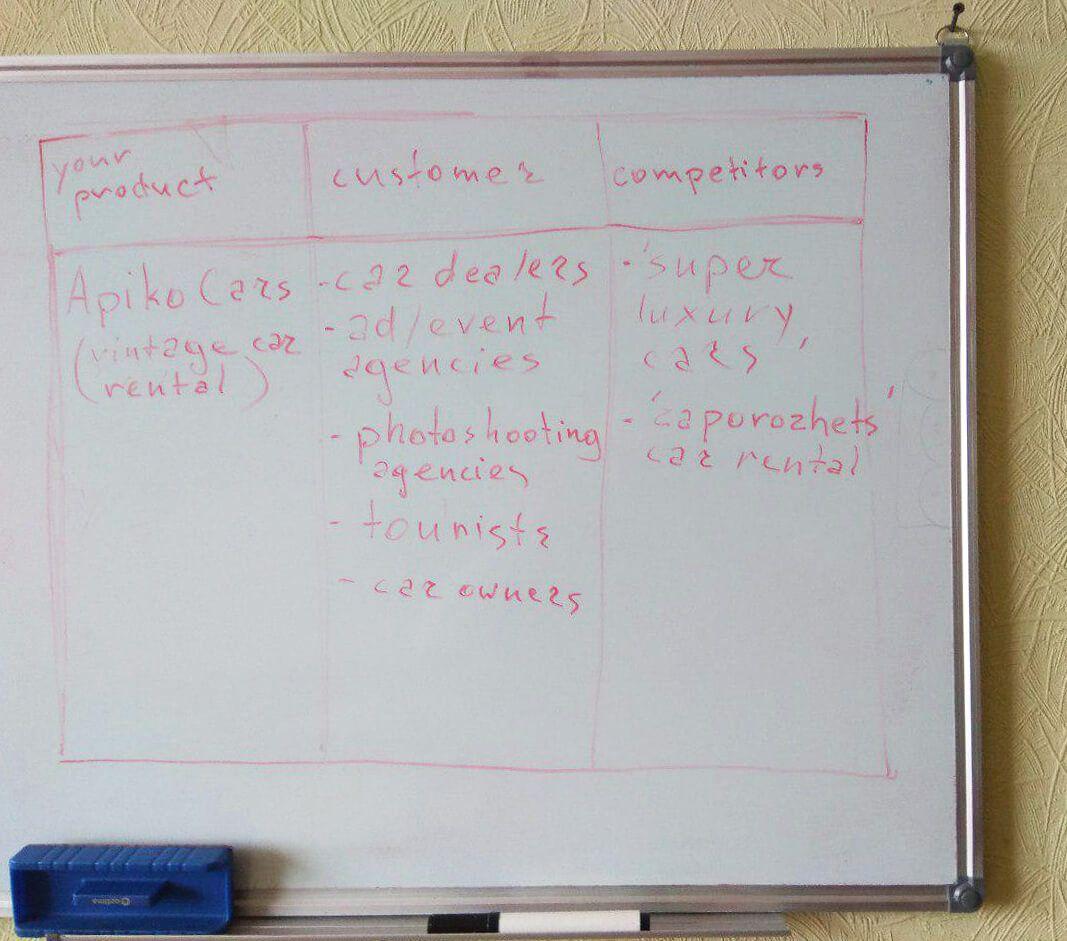 your
product
customer
competitors
Apiko Cars
(vintage car
rental)
-car dealers
-ad/event
agencies
- photoshooting
agencies
- tourists
- car owners
-'super
luxury
cars'
-'zaporozhets'
car rental